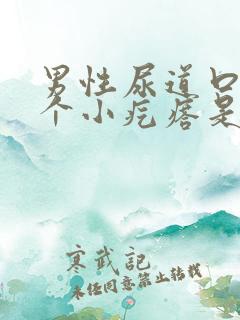 男性尿道口
个小疙瘩是
寒武記
未经同意禁止转载